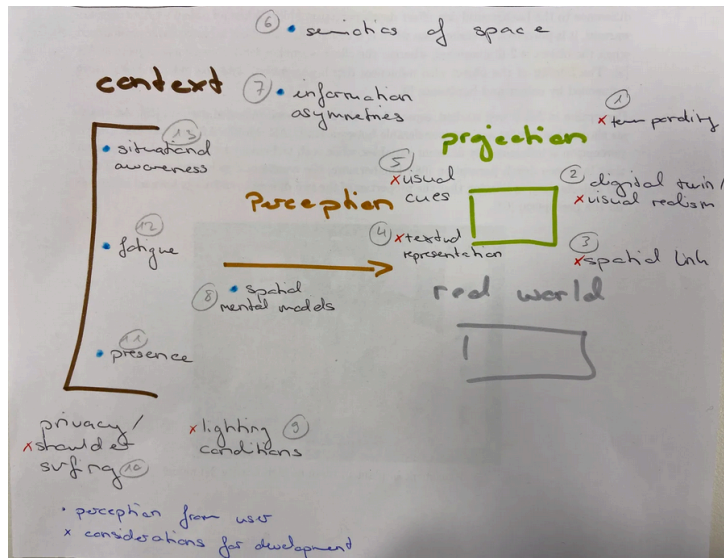 6 • semiotics of space
context
7 • information
asymmetries
1
x temporality
projection
13
• situational
awareness
5
x visual
cues
2 digital twin/
x visual realism
Perception
4 x textual
representation
3
x spatial link
12
• fatigue
real world
8 • spatial
mental models
11
• presence
privacy/
x shoulder
surfing 10
x lighting 9
conditions
• perception from user
x considerations for development